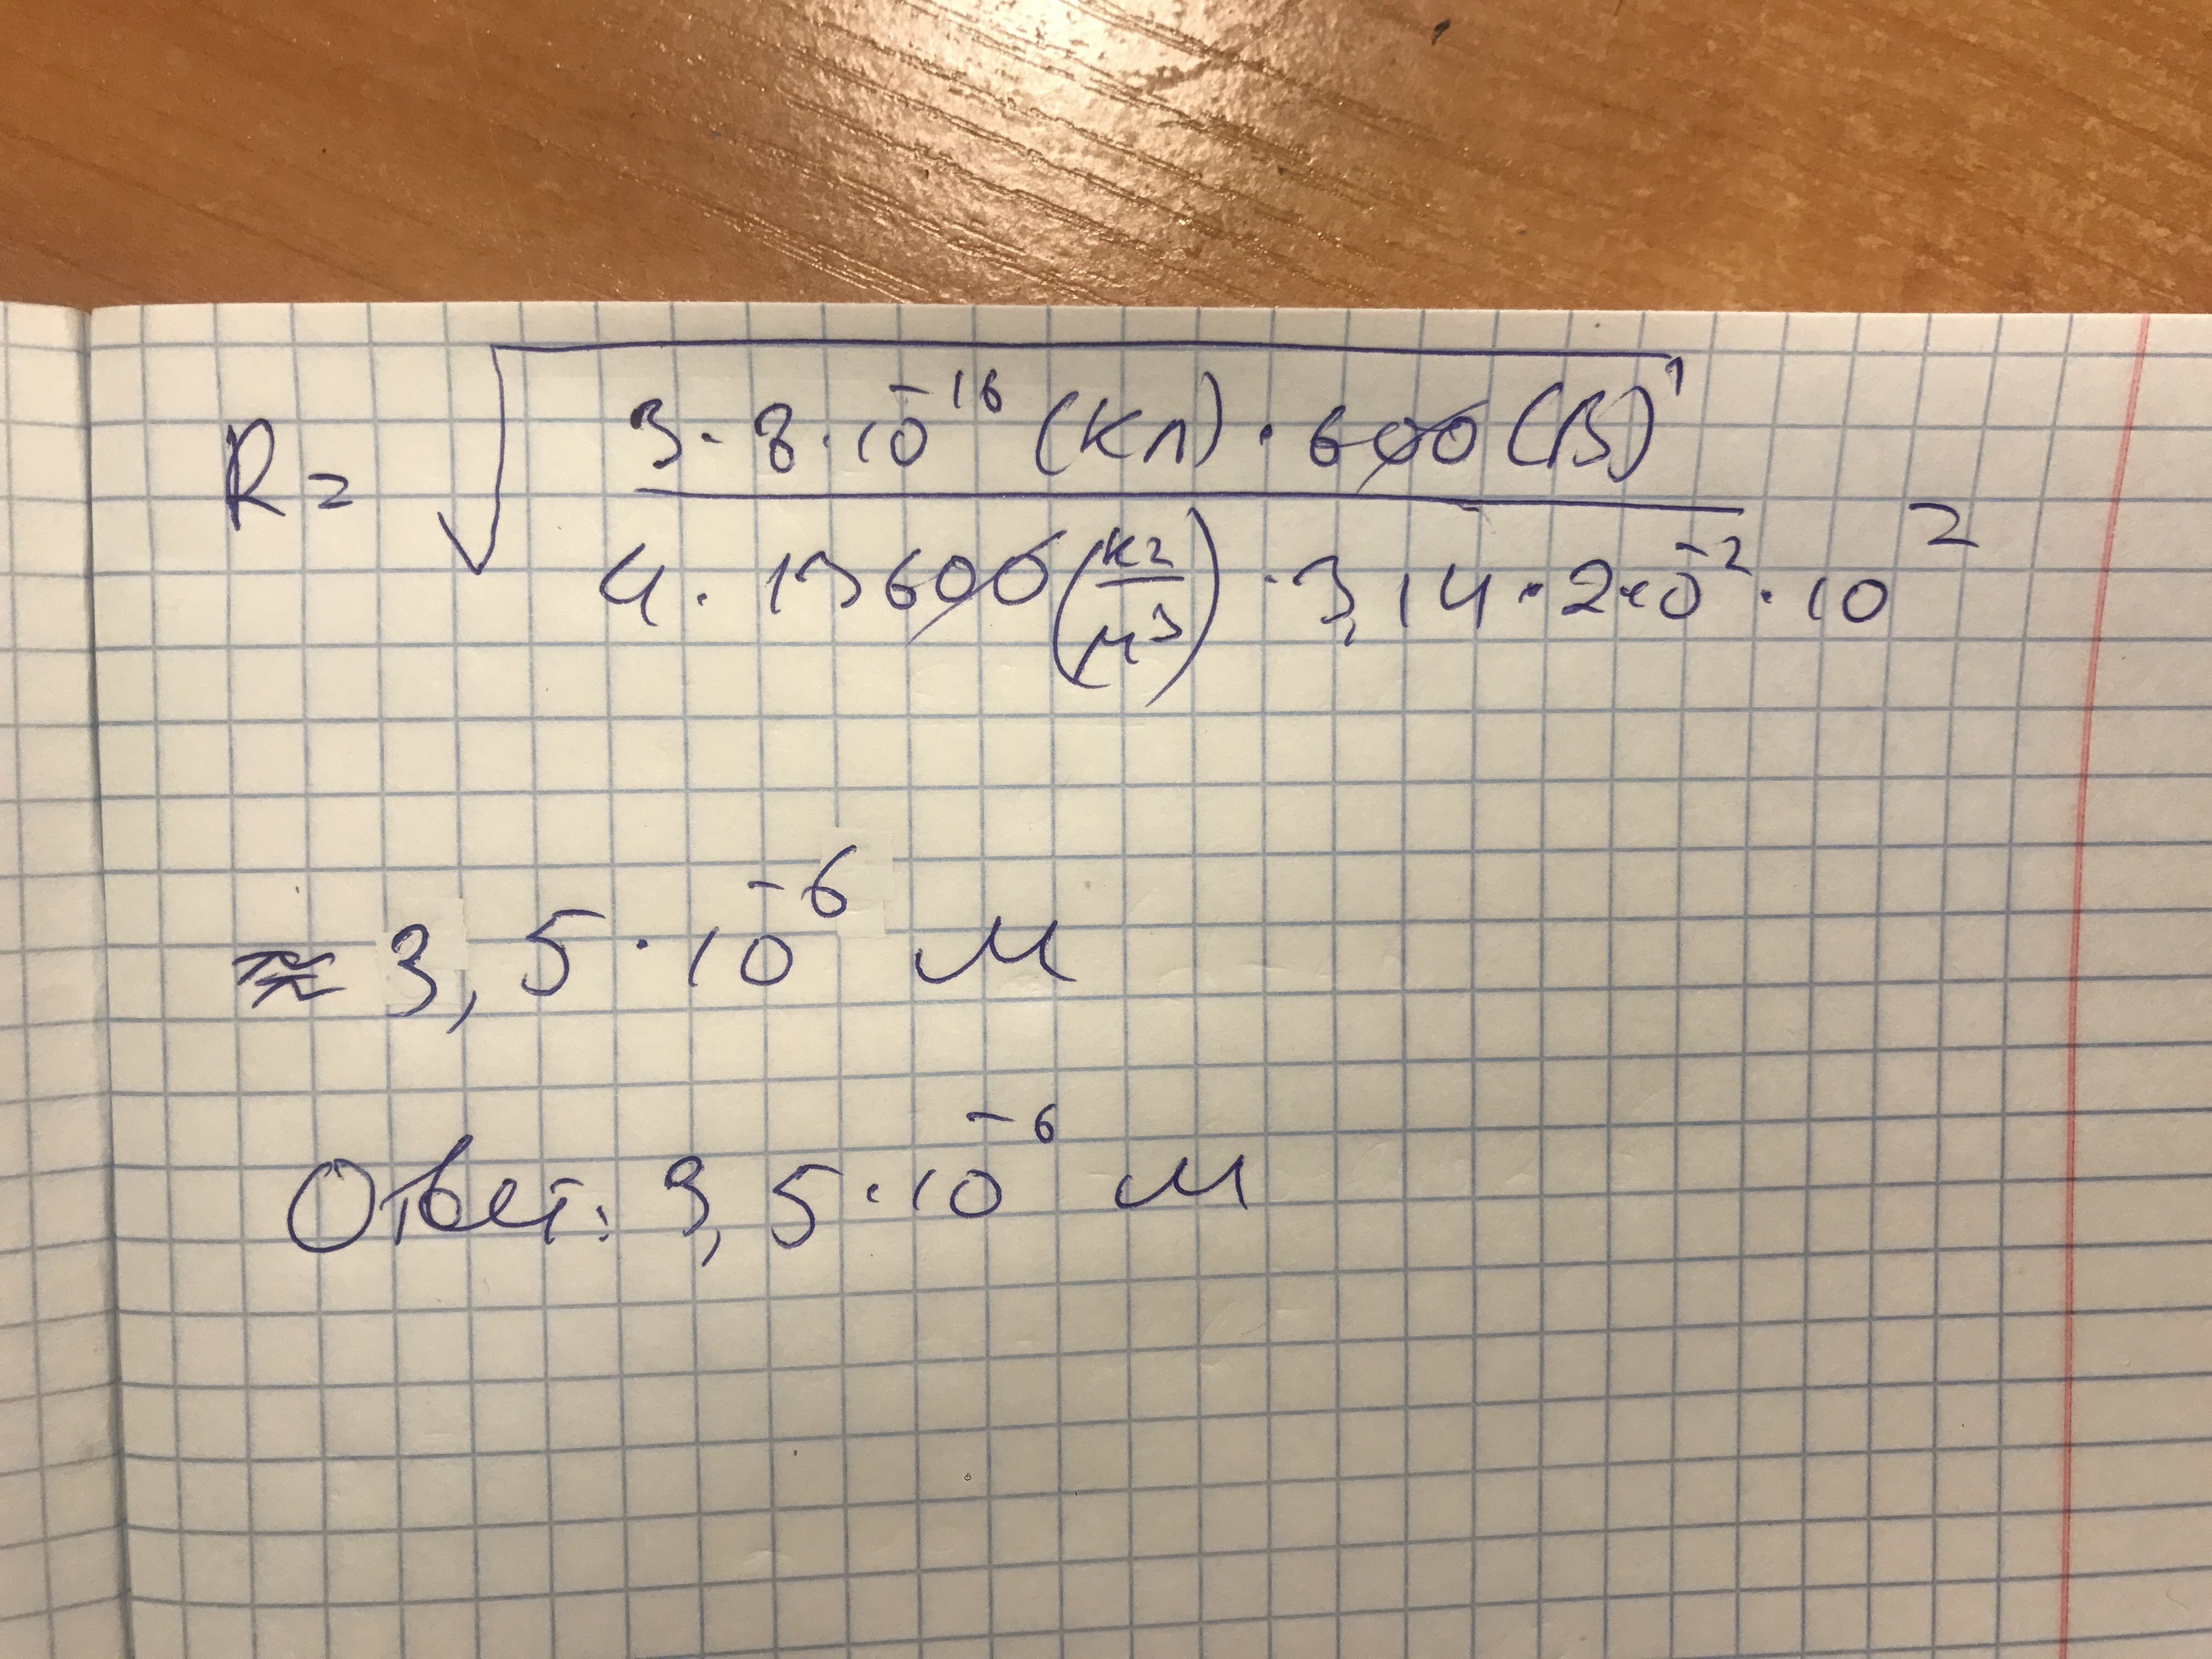 R = √ 3·8·10^-16 (Кл) · 600 (В)
4 · 13600 (кг/м^3) · 3,14 · 2·10^-2 · 10^2
≈ 3,5 · 10^-6 м
Ответ: 3,5 · 10^-6 м